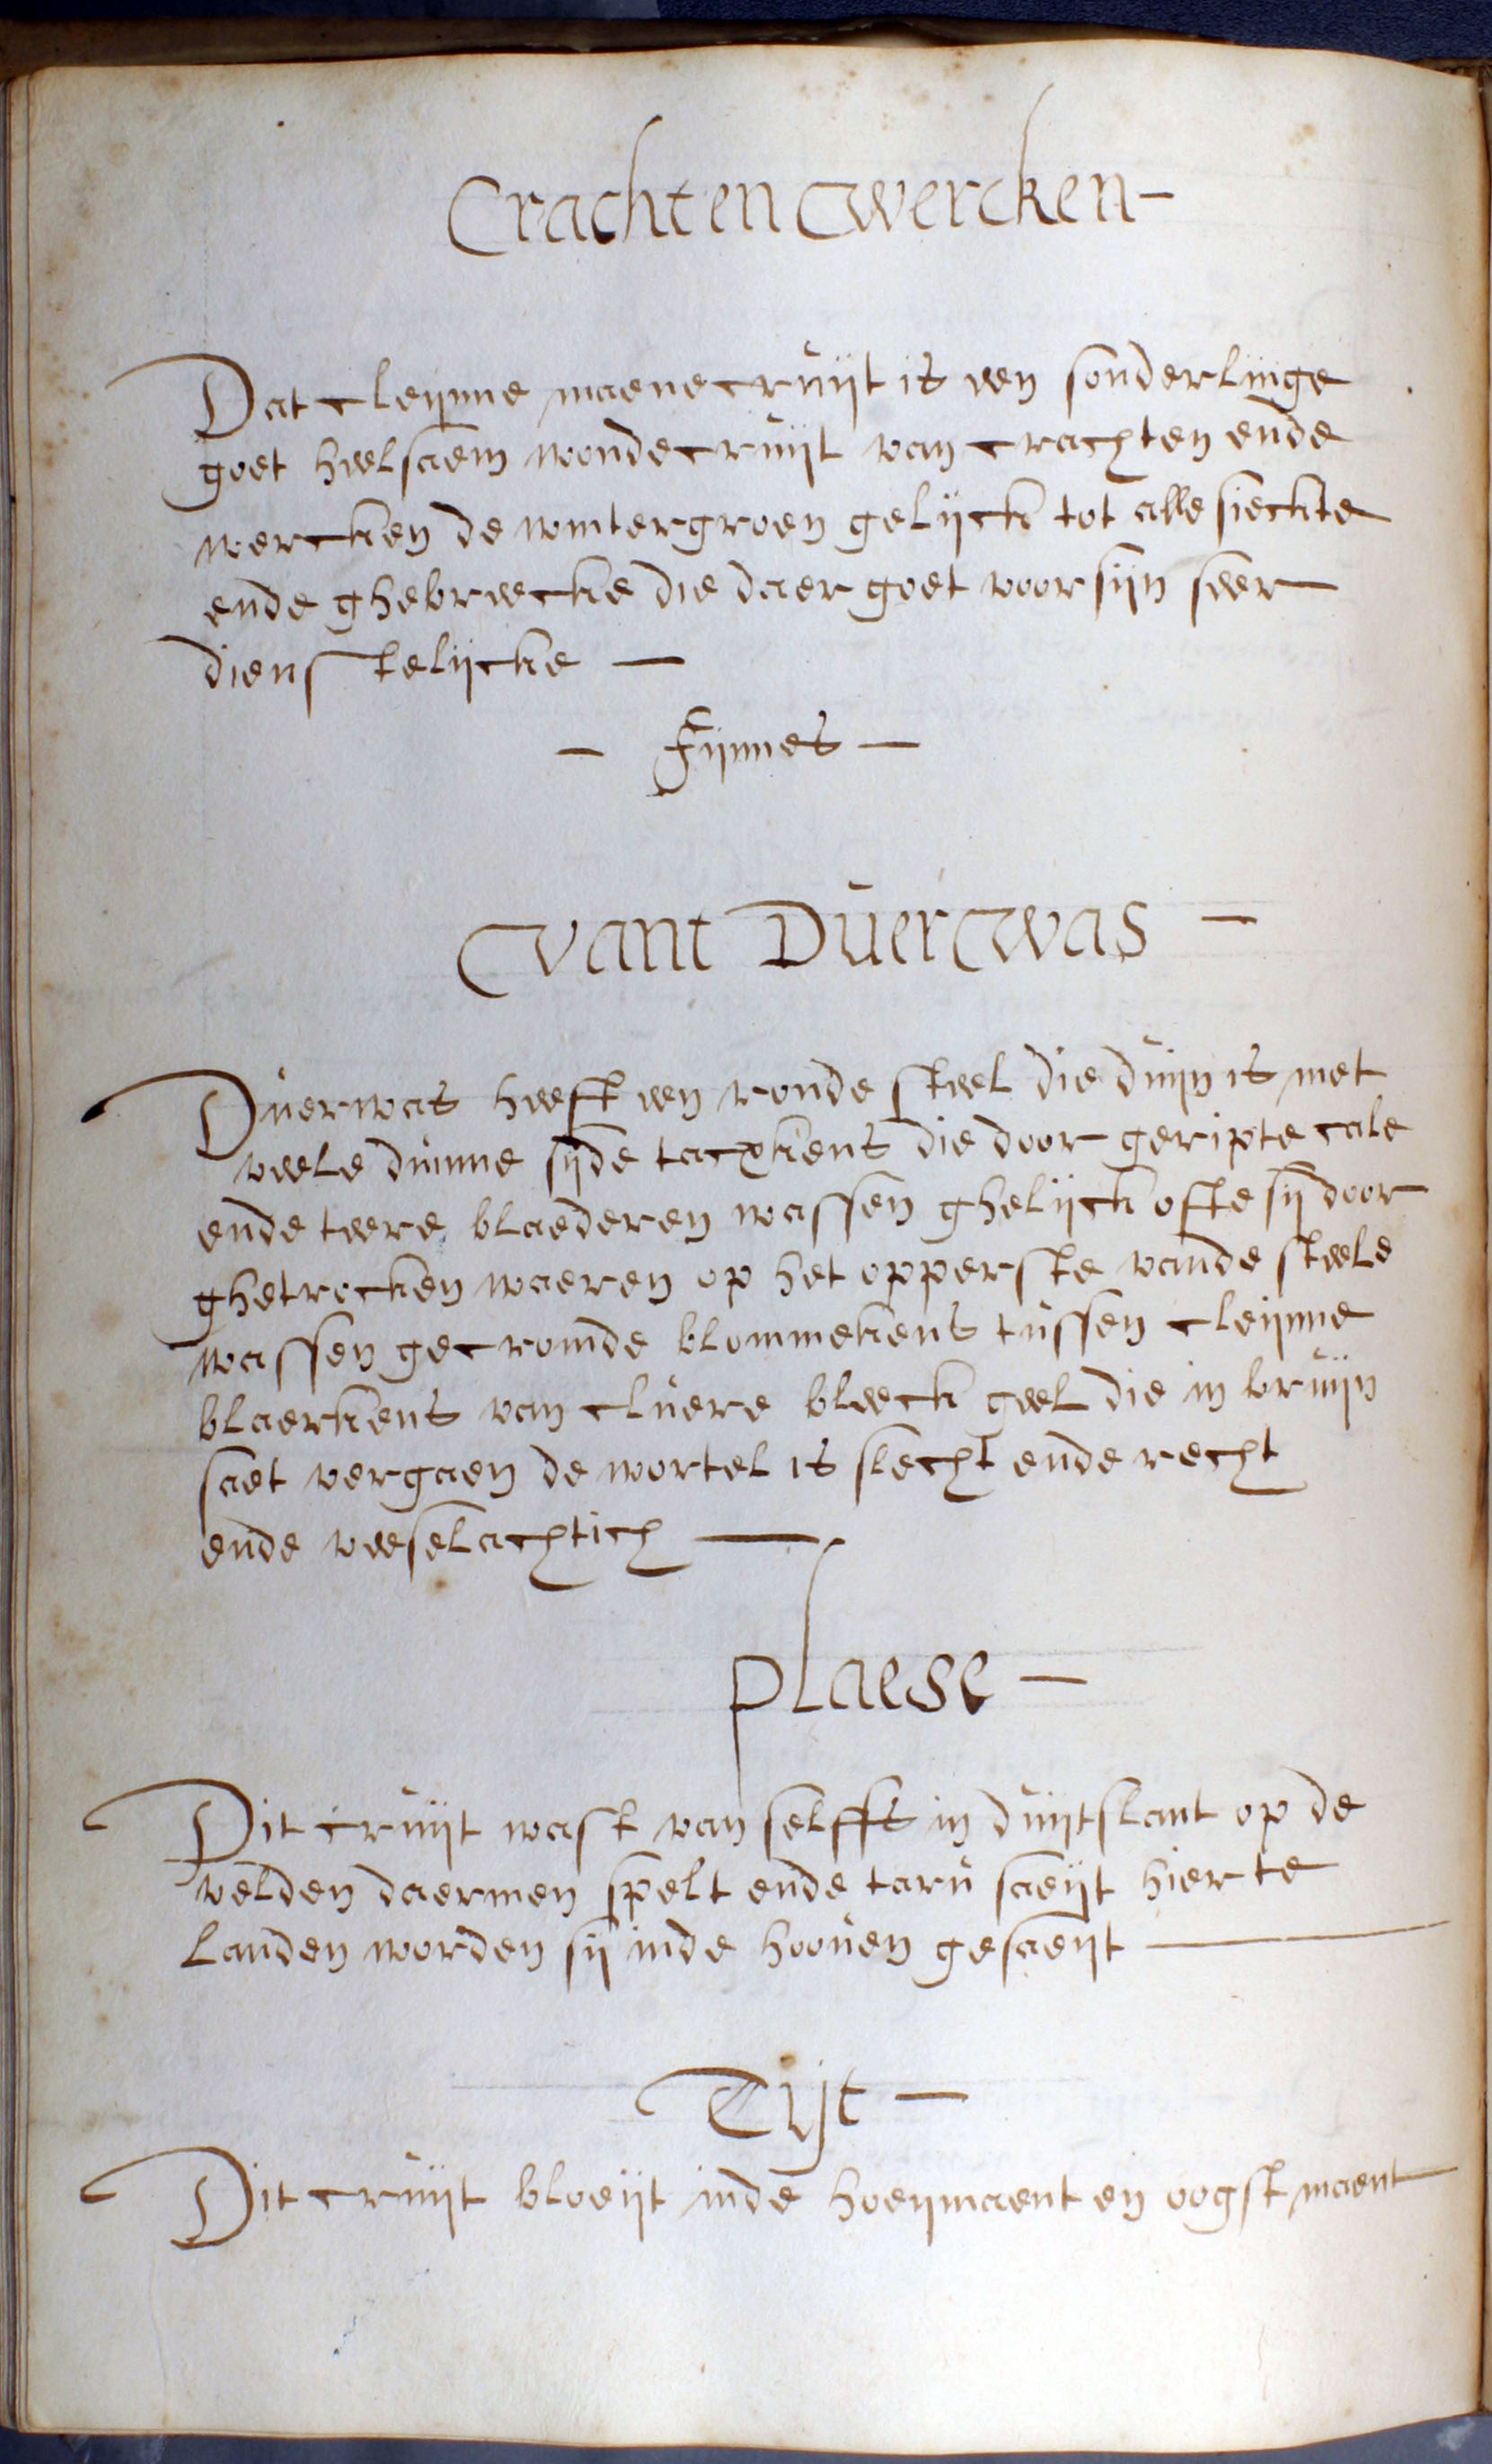 Cracht en wercken -
Dat cleynne maenecruijt is een sonderlinge
goet heelsaem wondecruijt van crachten ende
wercken de wintergroen gelijck tot alle sieckte
ende ghebreecke die daer goet voor sijn seer
dienstelijcke -
- Fijnnes -
Vant Duerwas -
Duerwas heeft een ronde steel die duijn is met
veele dunne sijde tacxkens die door geripte cale
ende teere blaederen wassen ghelijck ofte sij door
ghetrocken waeren op het opperste vande steele
wassen gecromde blommekens tussen cleijnne
blaerkens van cluere bleeck geel die in bruijn
saet vergaen de wortel is slecht ende recht
ende veeselachtich -
plaese -
Dit cruijt wast van selffs in duijtslant op de
velden daermen spelt ende taru saeijt hier te
landen worden sij inde hooven gesaeijt -
Tijt -
Dit cruijt bloeijt inde hoeijmaent en oogst maent